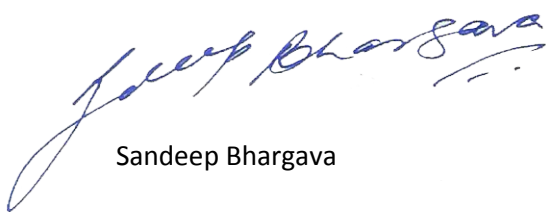 Sdeep Bhargava
Sandeep Bhargava